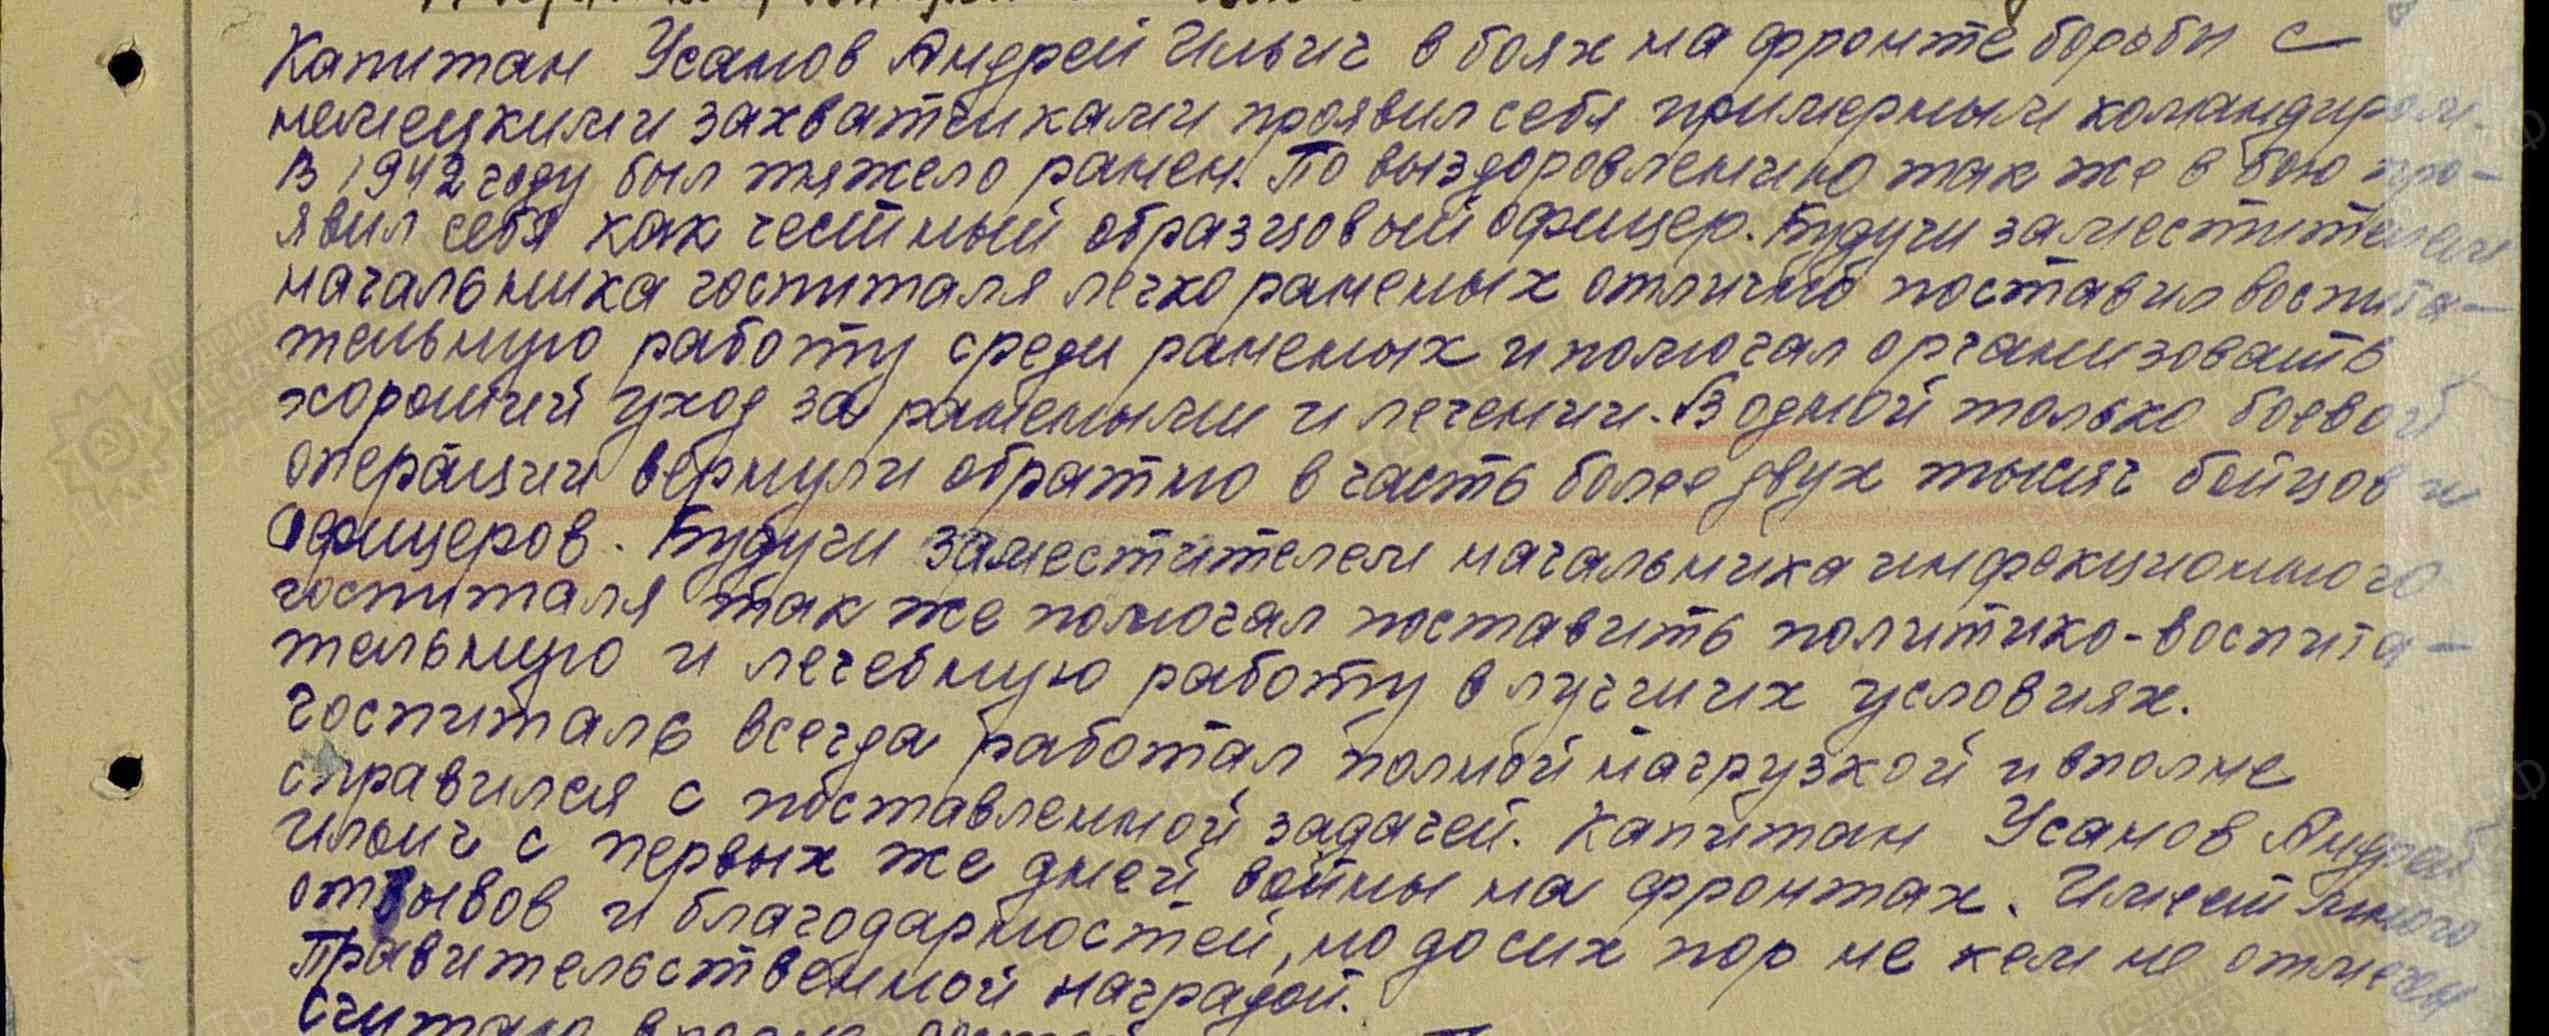 Капитан Усанов Андрей Ильич в боях на фронте борьбы с
немецкими захватчиками проявил себя примерным командиром.
В 1942 году был тяжело ранен. По выздоровлению так же в бою про-
явил себя как честный образцовый офицер. Будучи заместителем
начальника госпиталя легко раненых отлично поставил воспита-
тельную работу среди раненых и помогал организовать
хороший уход за ранеными и лечении. В одной только боевой
операции вернули обратно в часть более двух тысяч бойцов и
офицеров. Будучи заместителем начальника инфекционного
госпиталя так же помогал поставить политико-воспита-
тельную и лечебную работу в лучших условиях.
Госпиталь всегда работал полной нагрузкой и вполне
справился с поставленной задачей. Капитан Усанов Андрей
Ильич с первых же дней войны на фронтах. Имеет много
отзывов и благодарностей, но до сих пор не кем не отмечен
правительственной наградой.
Считаю вполне